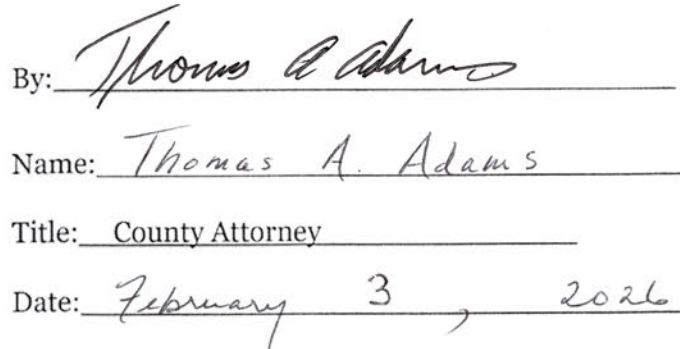 By: Thomas A Adams
Name: Thomas A. Adams
Title: County Attorney
Date: February 3, 2026